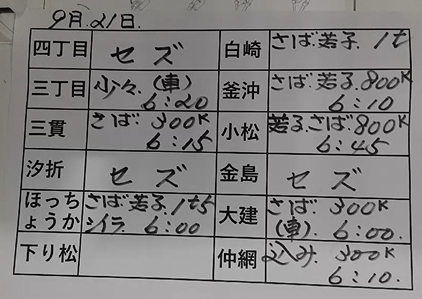 9月.21日.
四丁目 セズ 白崎 さば.若子. 1t
三丁目 少々.(車) 6:20 釜沖 さば.若子.800K 6:10
三貫 さば. 300K 6:15 小松 若子.さば.800K 6:45
汐折 セズ 金島 セズ
ほっちょうか さば.若子.1t5 シイラ 6:00 大建 さば. 300K (車) 6:00.
下り松 仲網 込み. 300K 6:10.